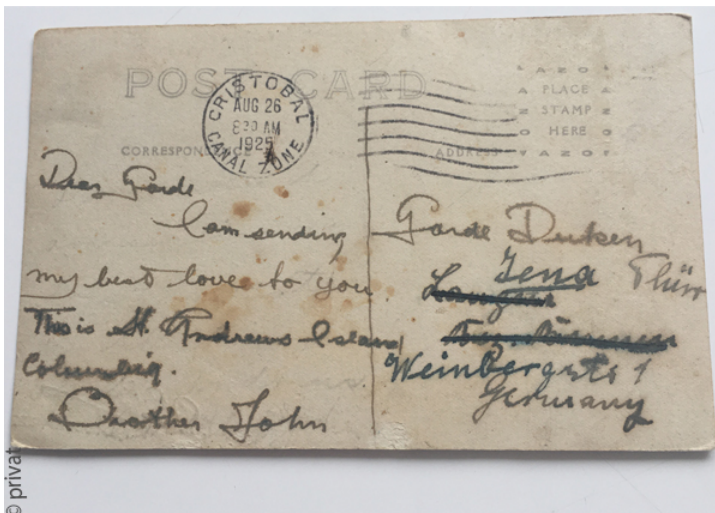 POST CARD
CRISTOBAL
AUG 26
8 30 AM
1925
CANAL ZONE
AZO
PLACE
STAMP
HERE
AZO
CORRESPONDENCE
ADDRESS
Dear Garde
I am sending
my best love to you
This is St. Andrews Island
Columbia.
Brother John
Garde Duken
Jena Thür
Weinbergstr 1
Germany
© privat